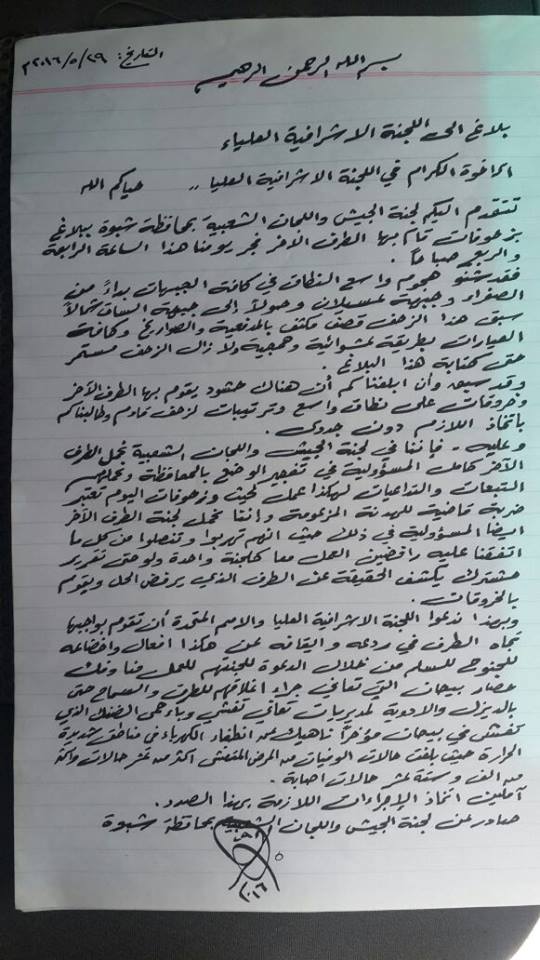 التاريخ: ٢٩/٥/٢٠١٦م
بسم الله الرحمن الرحيم
بلاغ الى اللجنة الاشرافية العلياء
الاخوة الكرام في اللجنة الاشرافية العليا ,, حياكم الله
تتقدم اليكم لجنة الجيش واللجان الشعبية بمحافظة شبوة ببلاغ
بزحوفات قام بها الطرف الاخر فجر يومنا هذا الساعة الرابعة
والربع صباحاً.
فقد شنو هجوم واسع النطاق في كافة الجبهات بداءً من
الصفراء وجبهة عسيلان وصولاً إلى جبهة الساق شمالاً
سبق هذا الزحف قصف مكثف بالمدفعية والصواريخ وكافة
العيارات بطريقة عشوائية وهمجية ولا زال الزحف مستمر
حتى كتابة هذا البلاغ.
وقد سبق وأن ابلغناكم أن هناك حشود يقوم بها الطرف الآخر
وخروقات على نطاق واسع وترتيبات لزحف قادم وطالبناكم
باتخاذ اللازم دون جدوى.
وعليه - فإننا في لجنة الجيش واللجان الشعبية نحمل الطرف
الآخر كامل المسؤولية في تفجير الوضع بالمحافظة ونحملهم
التبعات والتداعيات لهكذا عمل حيث وزحوفات اليوم تعتبر
ضربة قاضية للهدنة المزعومة وإننا نحمل لجنة الطرف الآخر
ايضا المسؤولية في ذلك حيث انهم تهربوا وتنصلوا من كل ما
اتفقنا عليه رافضين العمل معا كلجنة واحدة ولو حتى تقرير
مشترك يكشف الحقيقة عن الطرف الذي يرفض الحل ويقوم
بالخروقات.
وبهذا ندعوا اللجنة الاشرافية العليا والامم المتحدة أن تقوم بواجبها
تجاه الطرف في ردعه وايقافه عن هكذا افعال واخضاعه
للجنوح للسلم من خلال الدعوة للجنتهم للعمل معنا وفك
حصار بيحان التي تعاني جراء اغلاقهم للطرق والسماح حتى
بالديزل والادوية لمديريات تعاني تفشي وباء حمى الضنك الذي
تفشى في بيحان مؤخراً ناهيك عن انطفاء الكهرباء في مناطق شديدة
الحرارة حيث بلغت حالات الوفيات من المرض المتفشي اكثر من عشر حالات واكثر
من الف وستة عشر حالات اصابة.
آملين اتخاذ الإجراءات اللازمة بهذا الصدد.
صادر عن لجنة الجيش واللجان الشعبية بمحافظة شبوة
٢٠١٦